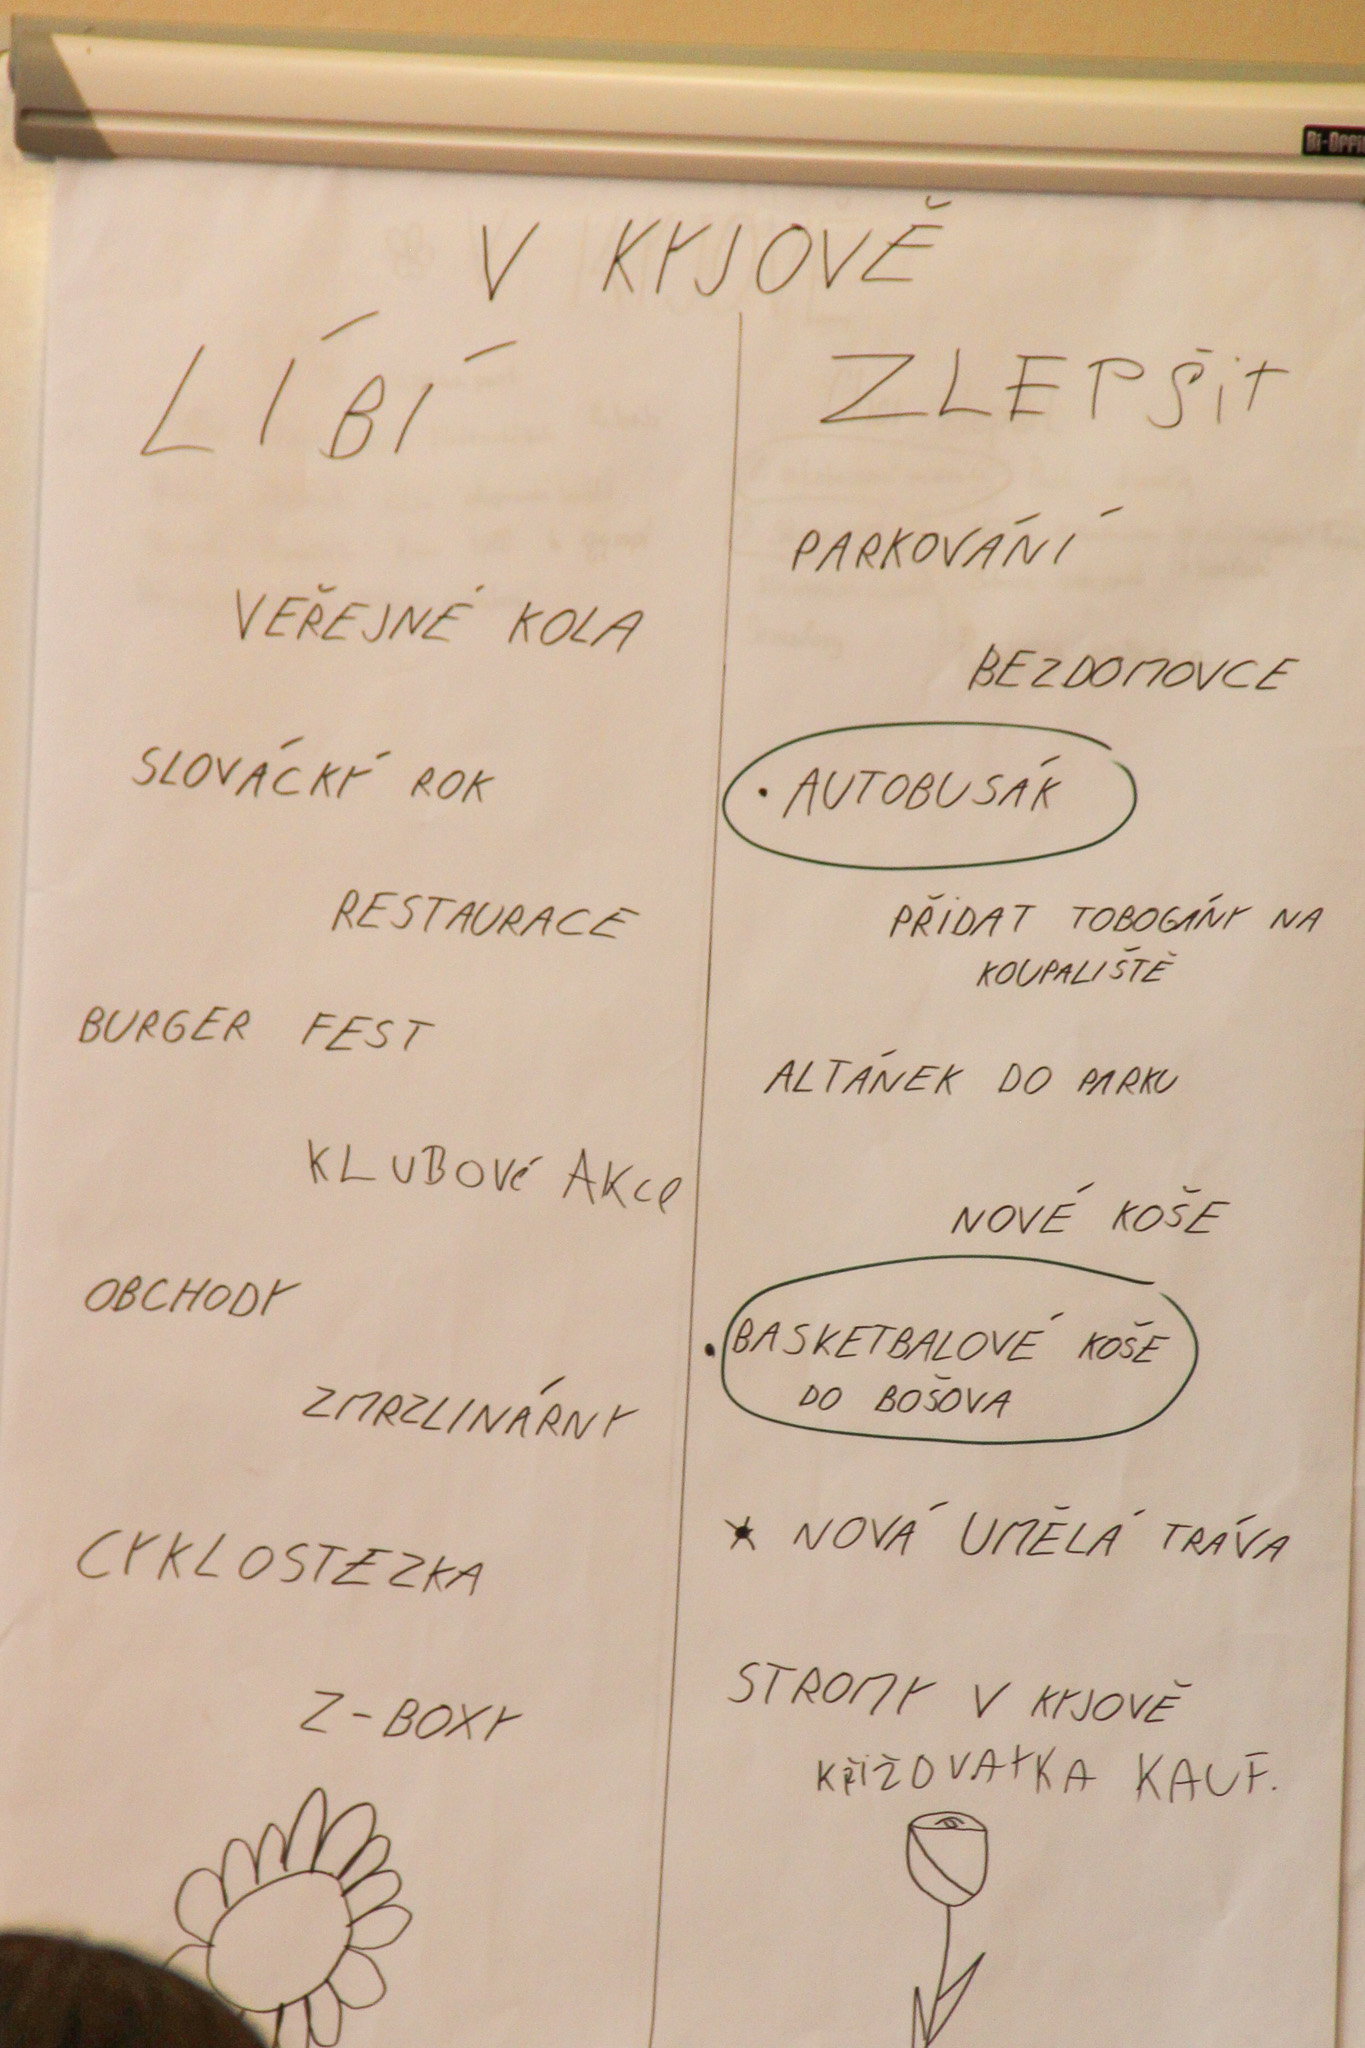 V KYJOVĚ
LÍBÍ
VEŘEJNÉ KOLA
SLOVÁCKÝ ROK
RESTAURACE
BURGER FEST
KLUBOVÉ AKCE
OBCHODY
ZMRZLINÁRNY
CYKLOSTEZKA
Z-BOXY
ZLEPŠIT
PARKOVÁNÍ
BEZDOMOVCE
• AUTOBUSÁK
PŘIDAT TOBOGÁNY NA
KOUPALIŠTĚ
ALTÁNEK DO PARKU
NOVÉ KOŠE
• BASKETBALOVÉ KOŠE
DO BOŠOVA
* NOVÁ UMĚLÁ TRÁVA
STROMY V KYJOVĚ
KŘIŽOVATKA KAUF.